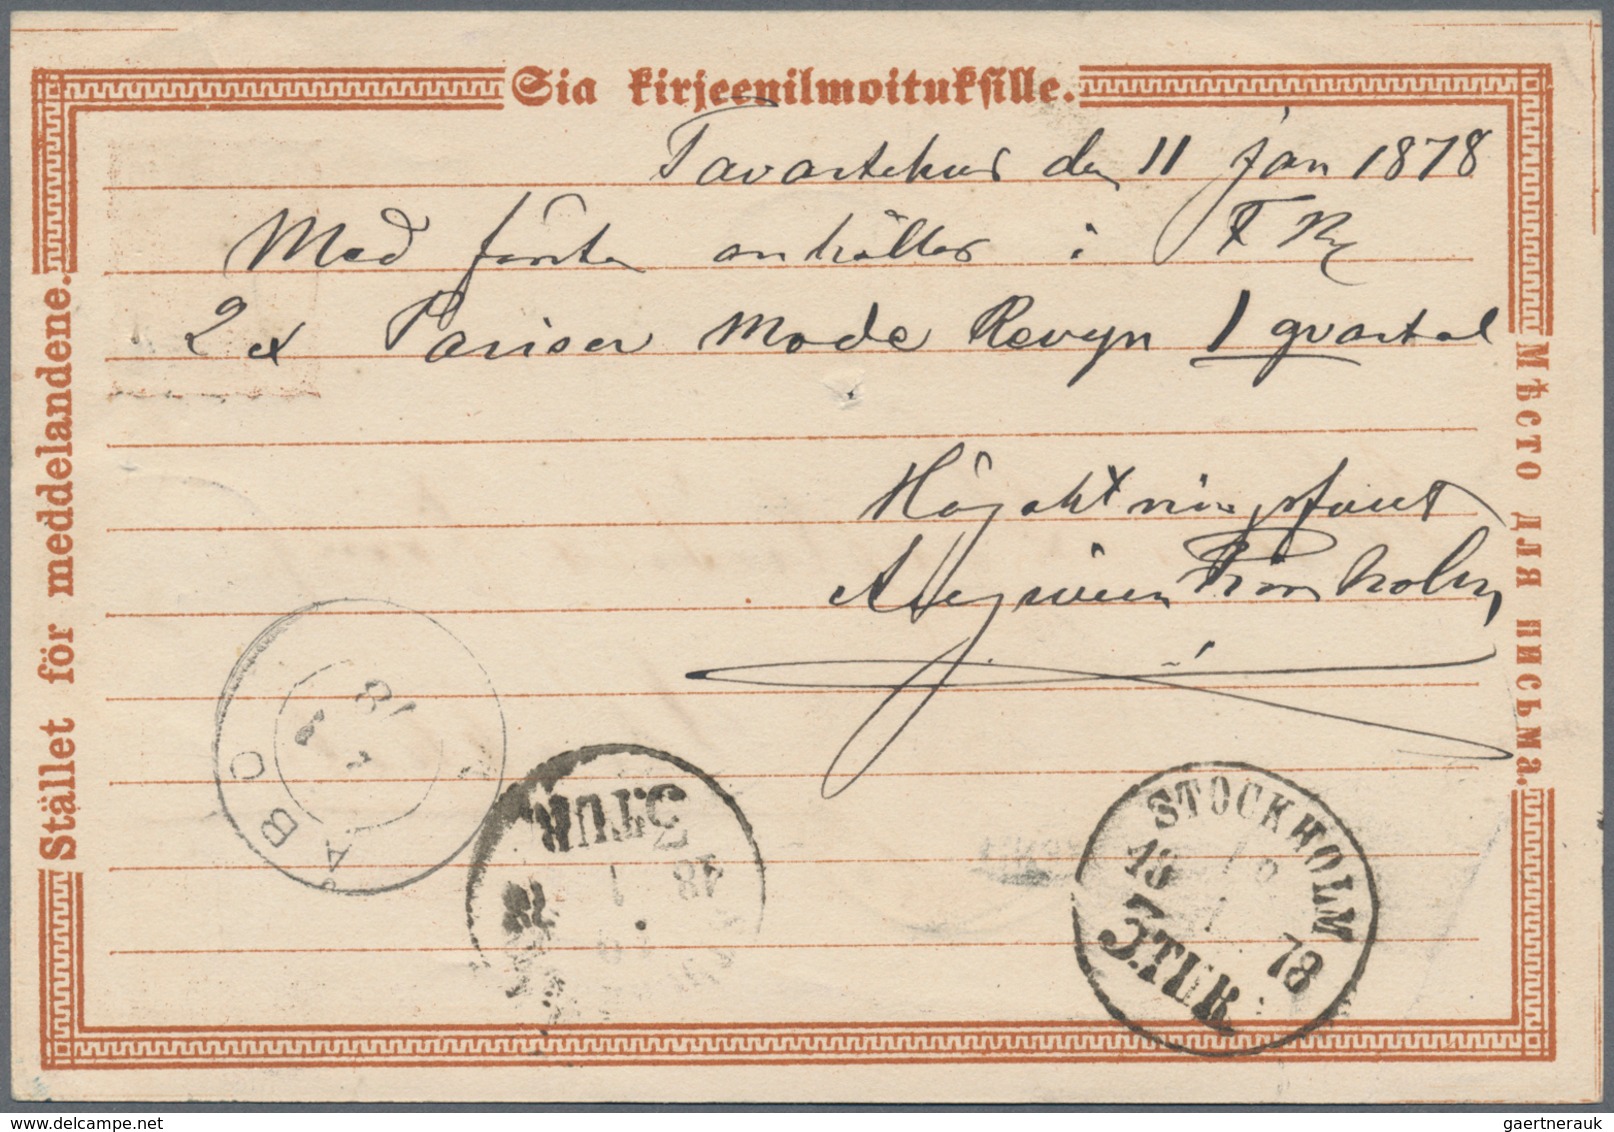 Sia kirjeenilmoituksille.
Stället för meddelandene.
Мѣсто для письма.
Tavastehus den 11 Jan 1878
Med första anhålles i
2 ex Pariser Mode Revyn 1 qvartal
Högaktningsfullt
ÅBO
78
STOCKHOLM
18 1 78
3.TUR.
3.TUR
18 1
gaertnerauk